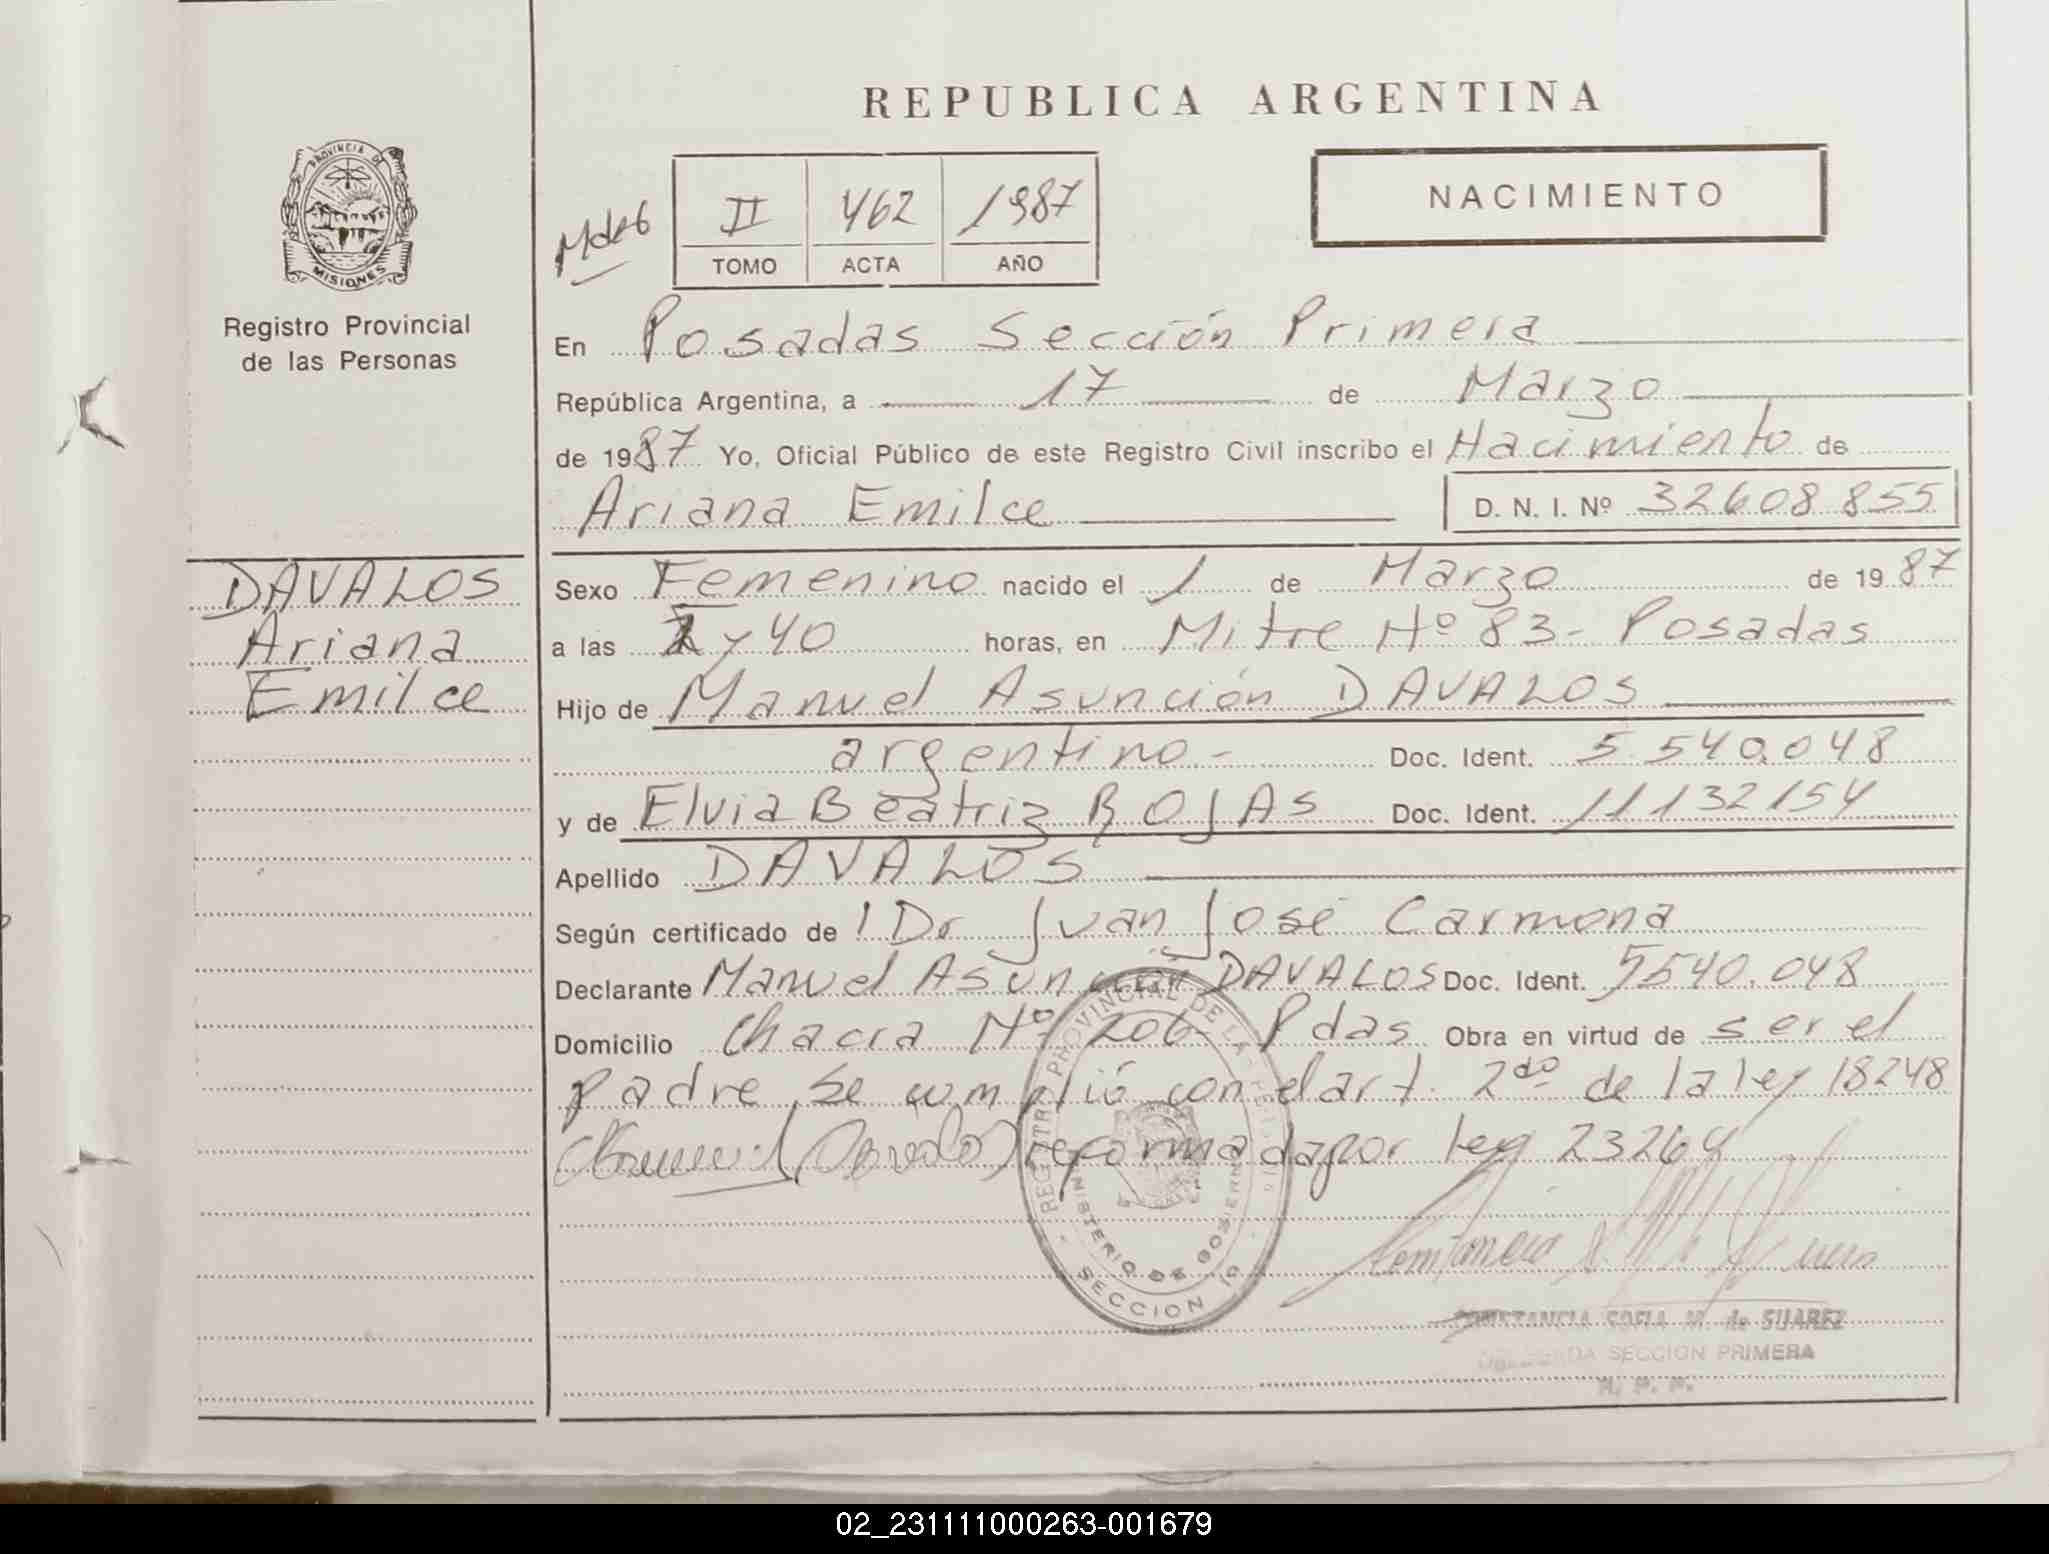 REPUBLICA ARGENTINA
PROVINCIA DE
MISIONES
Registro Provincial
de las Personas
NACIMIENTO
II 462 1987
TOMO ACTA AÑO
En Posadas Sección Primera
República Argentina, a 17 de Marzo
de 1987 Yo, Oficial Público de este Registro Civil inscribo el Nacimiento de
Ariana Emilce D. N. I. Nº 32608855
DAVALOS
Ariana
Emilce
Sexo Femenino nacido el 1 de Marzo de 1987
a las y 40 horas, en Mitre Nº 83- Posadas
Hijo de Manuel Asunción DAVALOS
argentino- Doc. Ident. 5.540.048
y de Elvia Beatriz ROJAS Doc. Ident. 11132154
Apellido DAVALOS
Según certificado de l Dr Juan José Carmona
Declarante Manuel Asunción DAVALOS Doc. Ident. 5540.048
Domicilio Chacra Nº 206- Pdas Obra en virtud de ser el
padre. Se cumplió con el art. 2do de la ley 18248
reformada por ley 23264
REGISTRO PROVINCIAL DE LAS PERSONAS
MINISTERIO DE GOBIERNO
SECCION 1º
CONSTANCIA SOFIA M. de SUAREZ
DELEGADA SECCION PRIMERA
R. P. P.
02_231111000263-001679